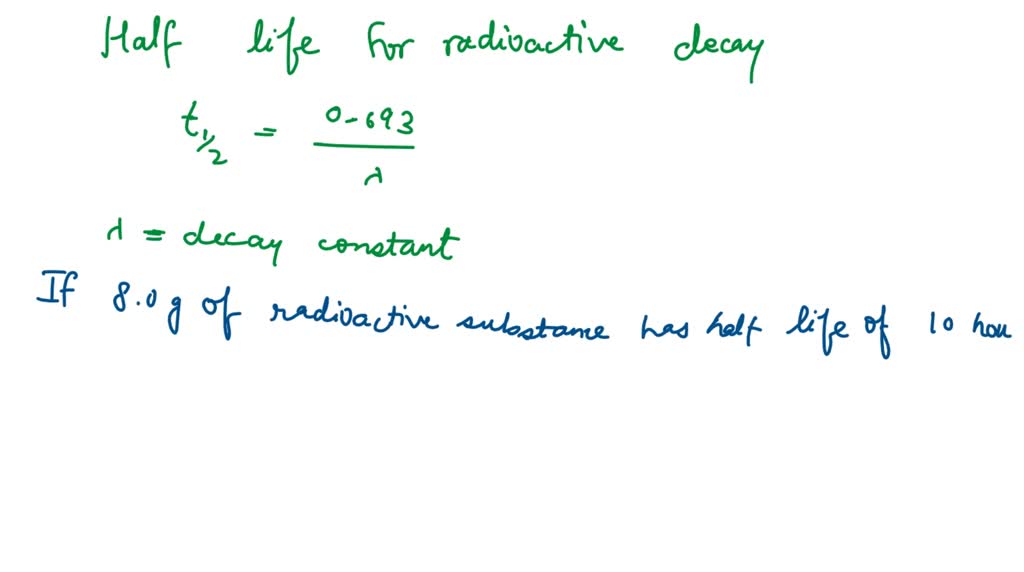 Half life for radioactive decay
t1/2 = 0.693/λ
λ = decay constant
If 8.0 g of radioactive substance has half life of 10 hou